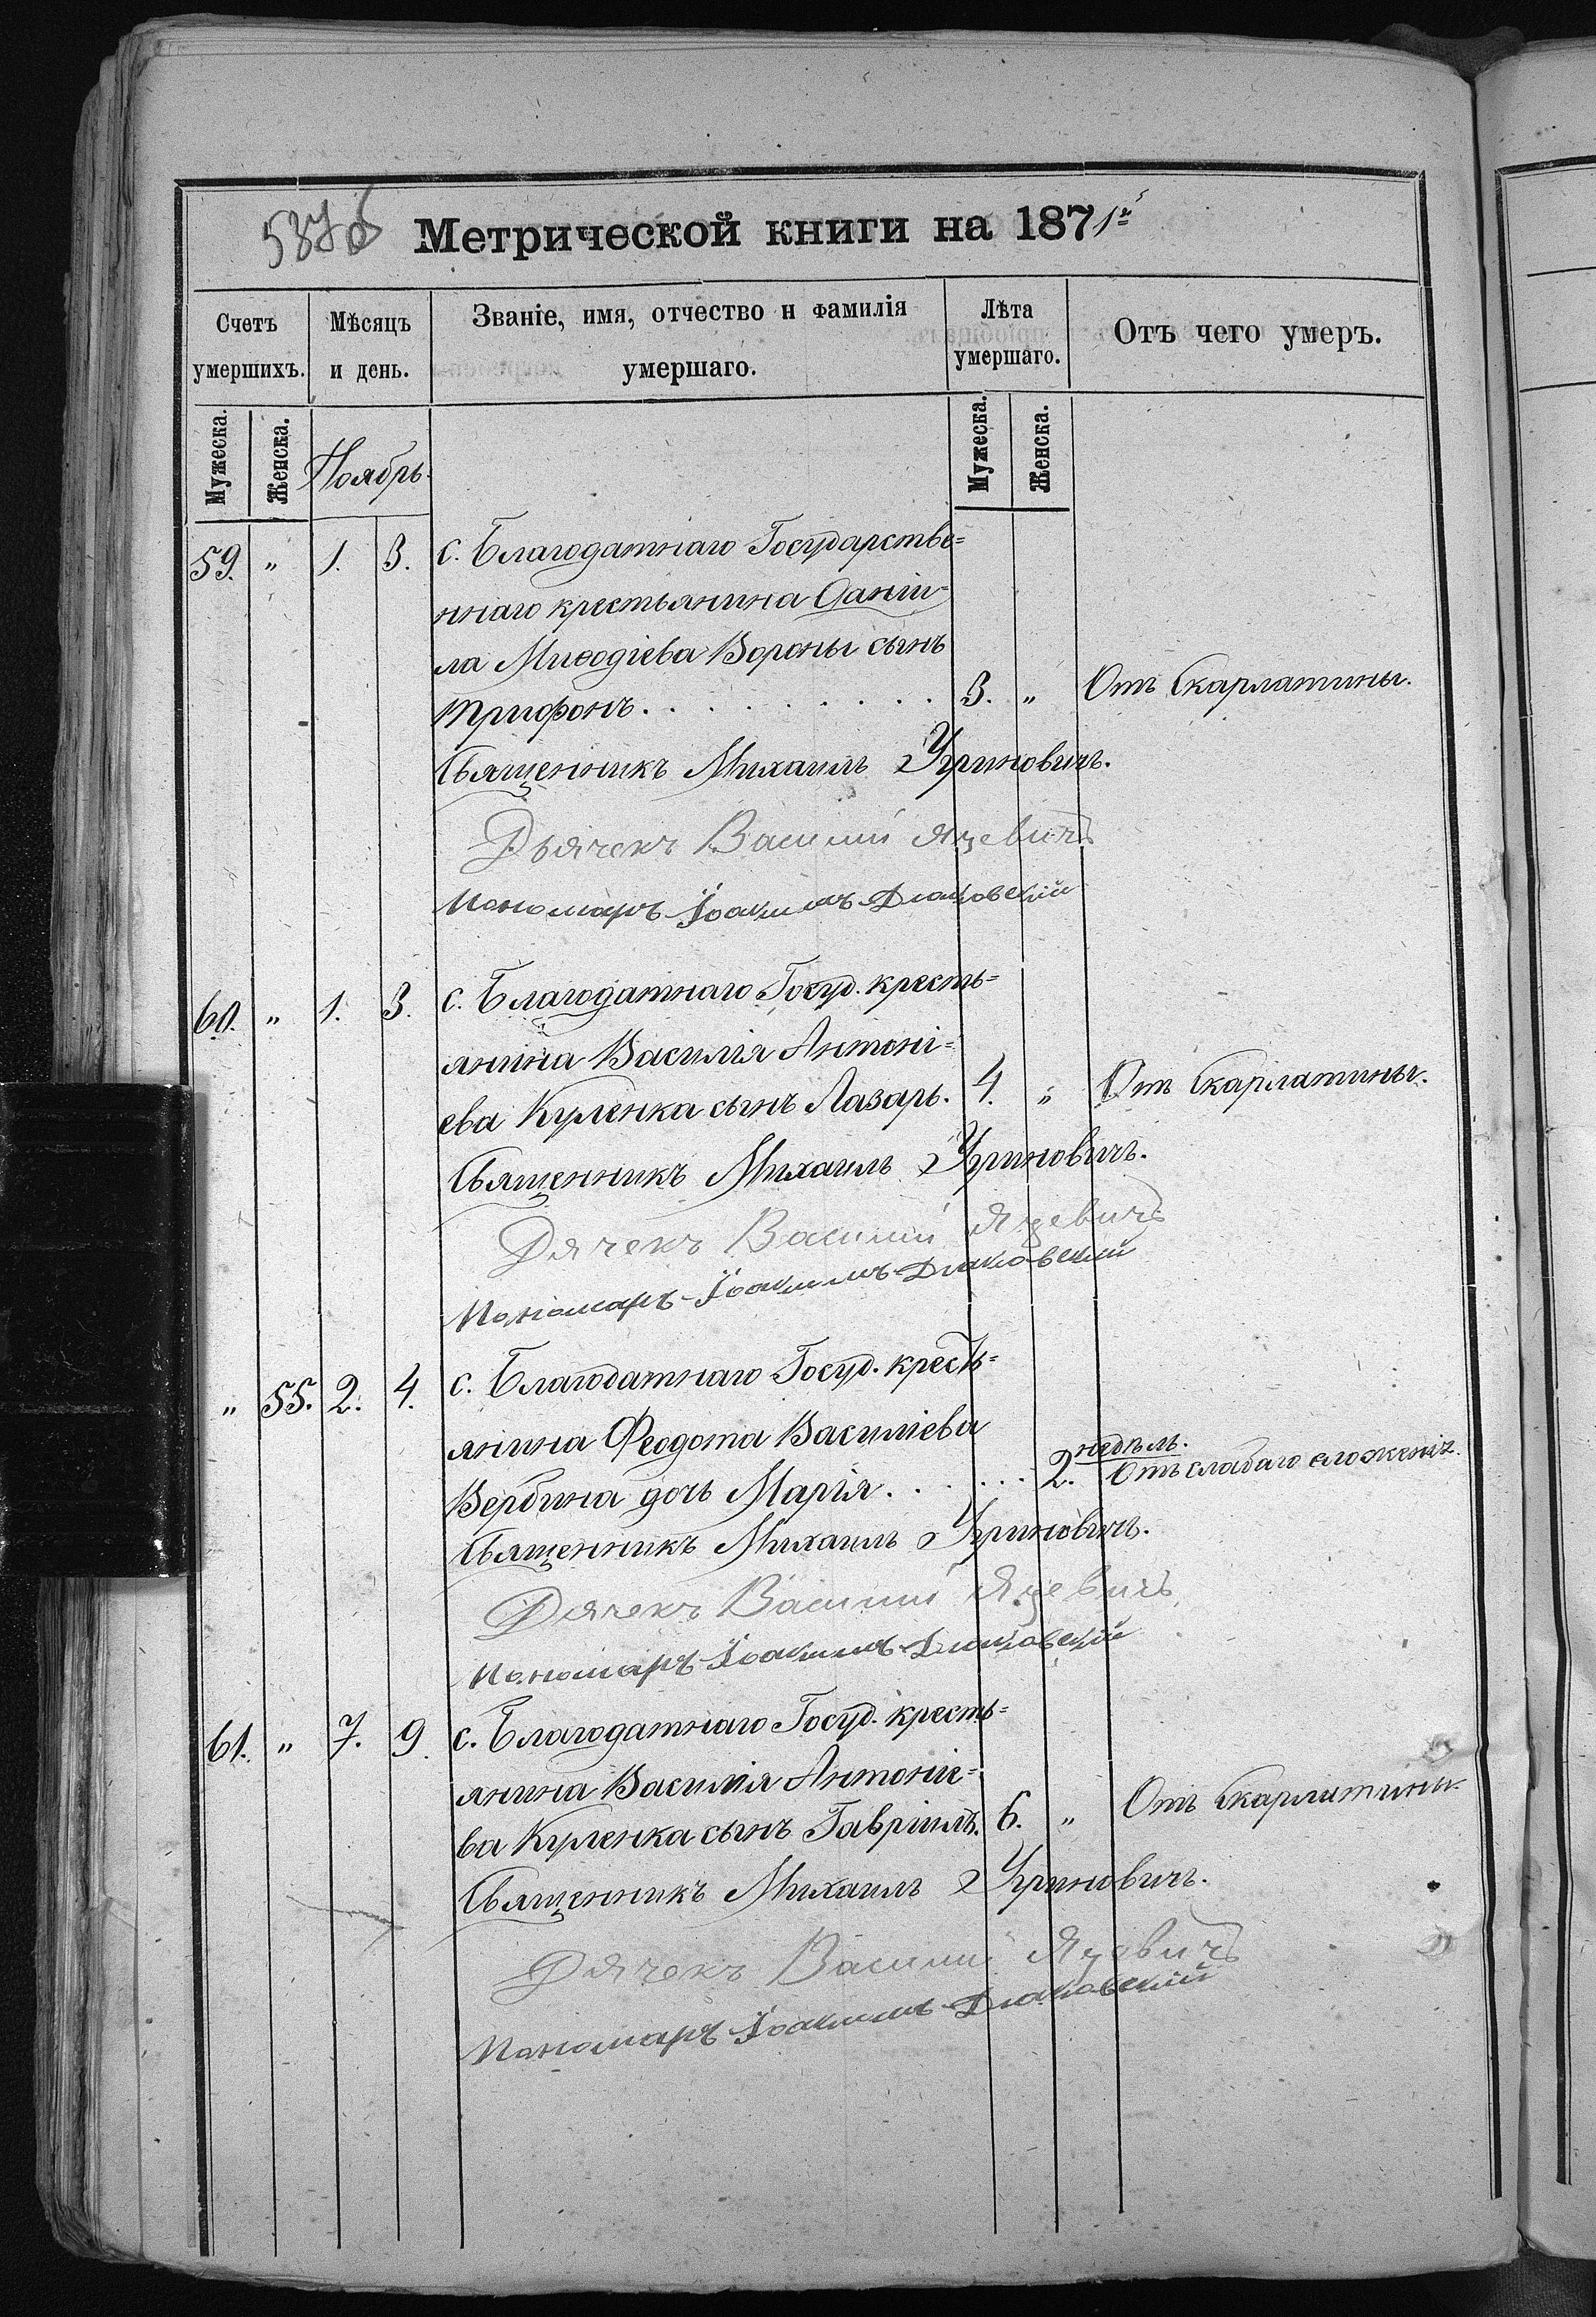 537об
Метрической книги на 1871й
Счетъ умершихъ.
Мѣсяцъ и день.
Званіе, имя, отчество и фамилія умершаго.
Лѣта умершаго.
Отъ чего умеръ.
Мужеска.
Женска.
Ноябрь.
Мужеска.
Женска.
59. " 1. 3. с. Благодатнаго Государстве=
ннаго крестьянина Даніи=
ла Миѳодіева Вороны сынъ
Трифонъ. . . . . . . . . 3. " Отъ Скарлатины.
Священникъ Михаилъ Угриновичъ.
Дьячекъ Василий Яцевичъ
Пономарь Іоакимъ
60. " 1. 3. с. Благодатнаго Госуд. кресть=
янина Василія Антоні=
ева Куленка сынъ Лазарь. 4. " Отъ Скарлатины.
Священникъ Михаилъ Угриновичъ.
Дячекъ Василий Яцевичъ
Пономарь Іоакимъ
" 55. 2. 4. с. Благодатнаго Госуд. кресть=
янина Феодота Василіева
Вербина дочь Марія. . . . . . 2. недѣль. Отъ слабаго сложенія.
Священникъ Михаилъ Угриновичъ.
Дячекъ Василий Яцевичъ
Пономарь Іоакимъ
61. " 7. 9. с. Благодатнаго Госуд. кресть=
янина Василія Антоніе=
ва Куленка сынъ Гавріилъ. 6. " Отъ Скарлатины.
Священникъ Михаилъ Угриновичъ.
Дячекъ Василий Яцевичъ
Пономарь Іоакимъ